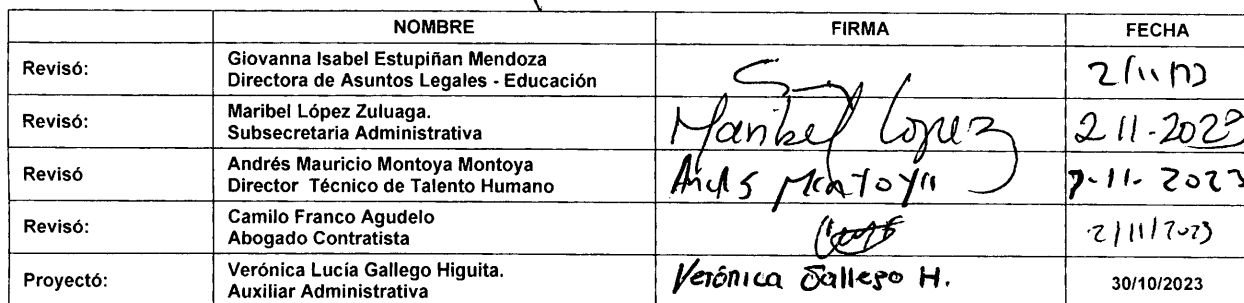 NOMBRE FIRMA FECHA
Revisó: Giovanna Isabel Estupiñan Mendoza
Directora de Asuntos Legales - Educación
Revisó: Maribel López Zuluaga.
Subsecretaria Administrativa
Maribel Lopez 2 11-2023
Revisó Andrés Mauricio Montoya Montoya
Director Técnico de Talento Humano
Montoya 11-2023
Revisó: Camilo Franco Agudelo
Abogado Contratista
2/11/2023
Proyectó: Verónica Lucía Gallego Higuita.
Auxiliar Administrativa
Verónica Gallego H. 30/10/2023